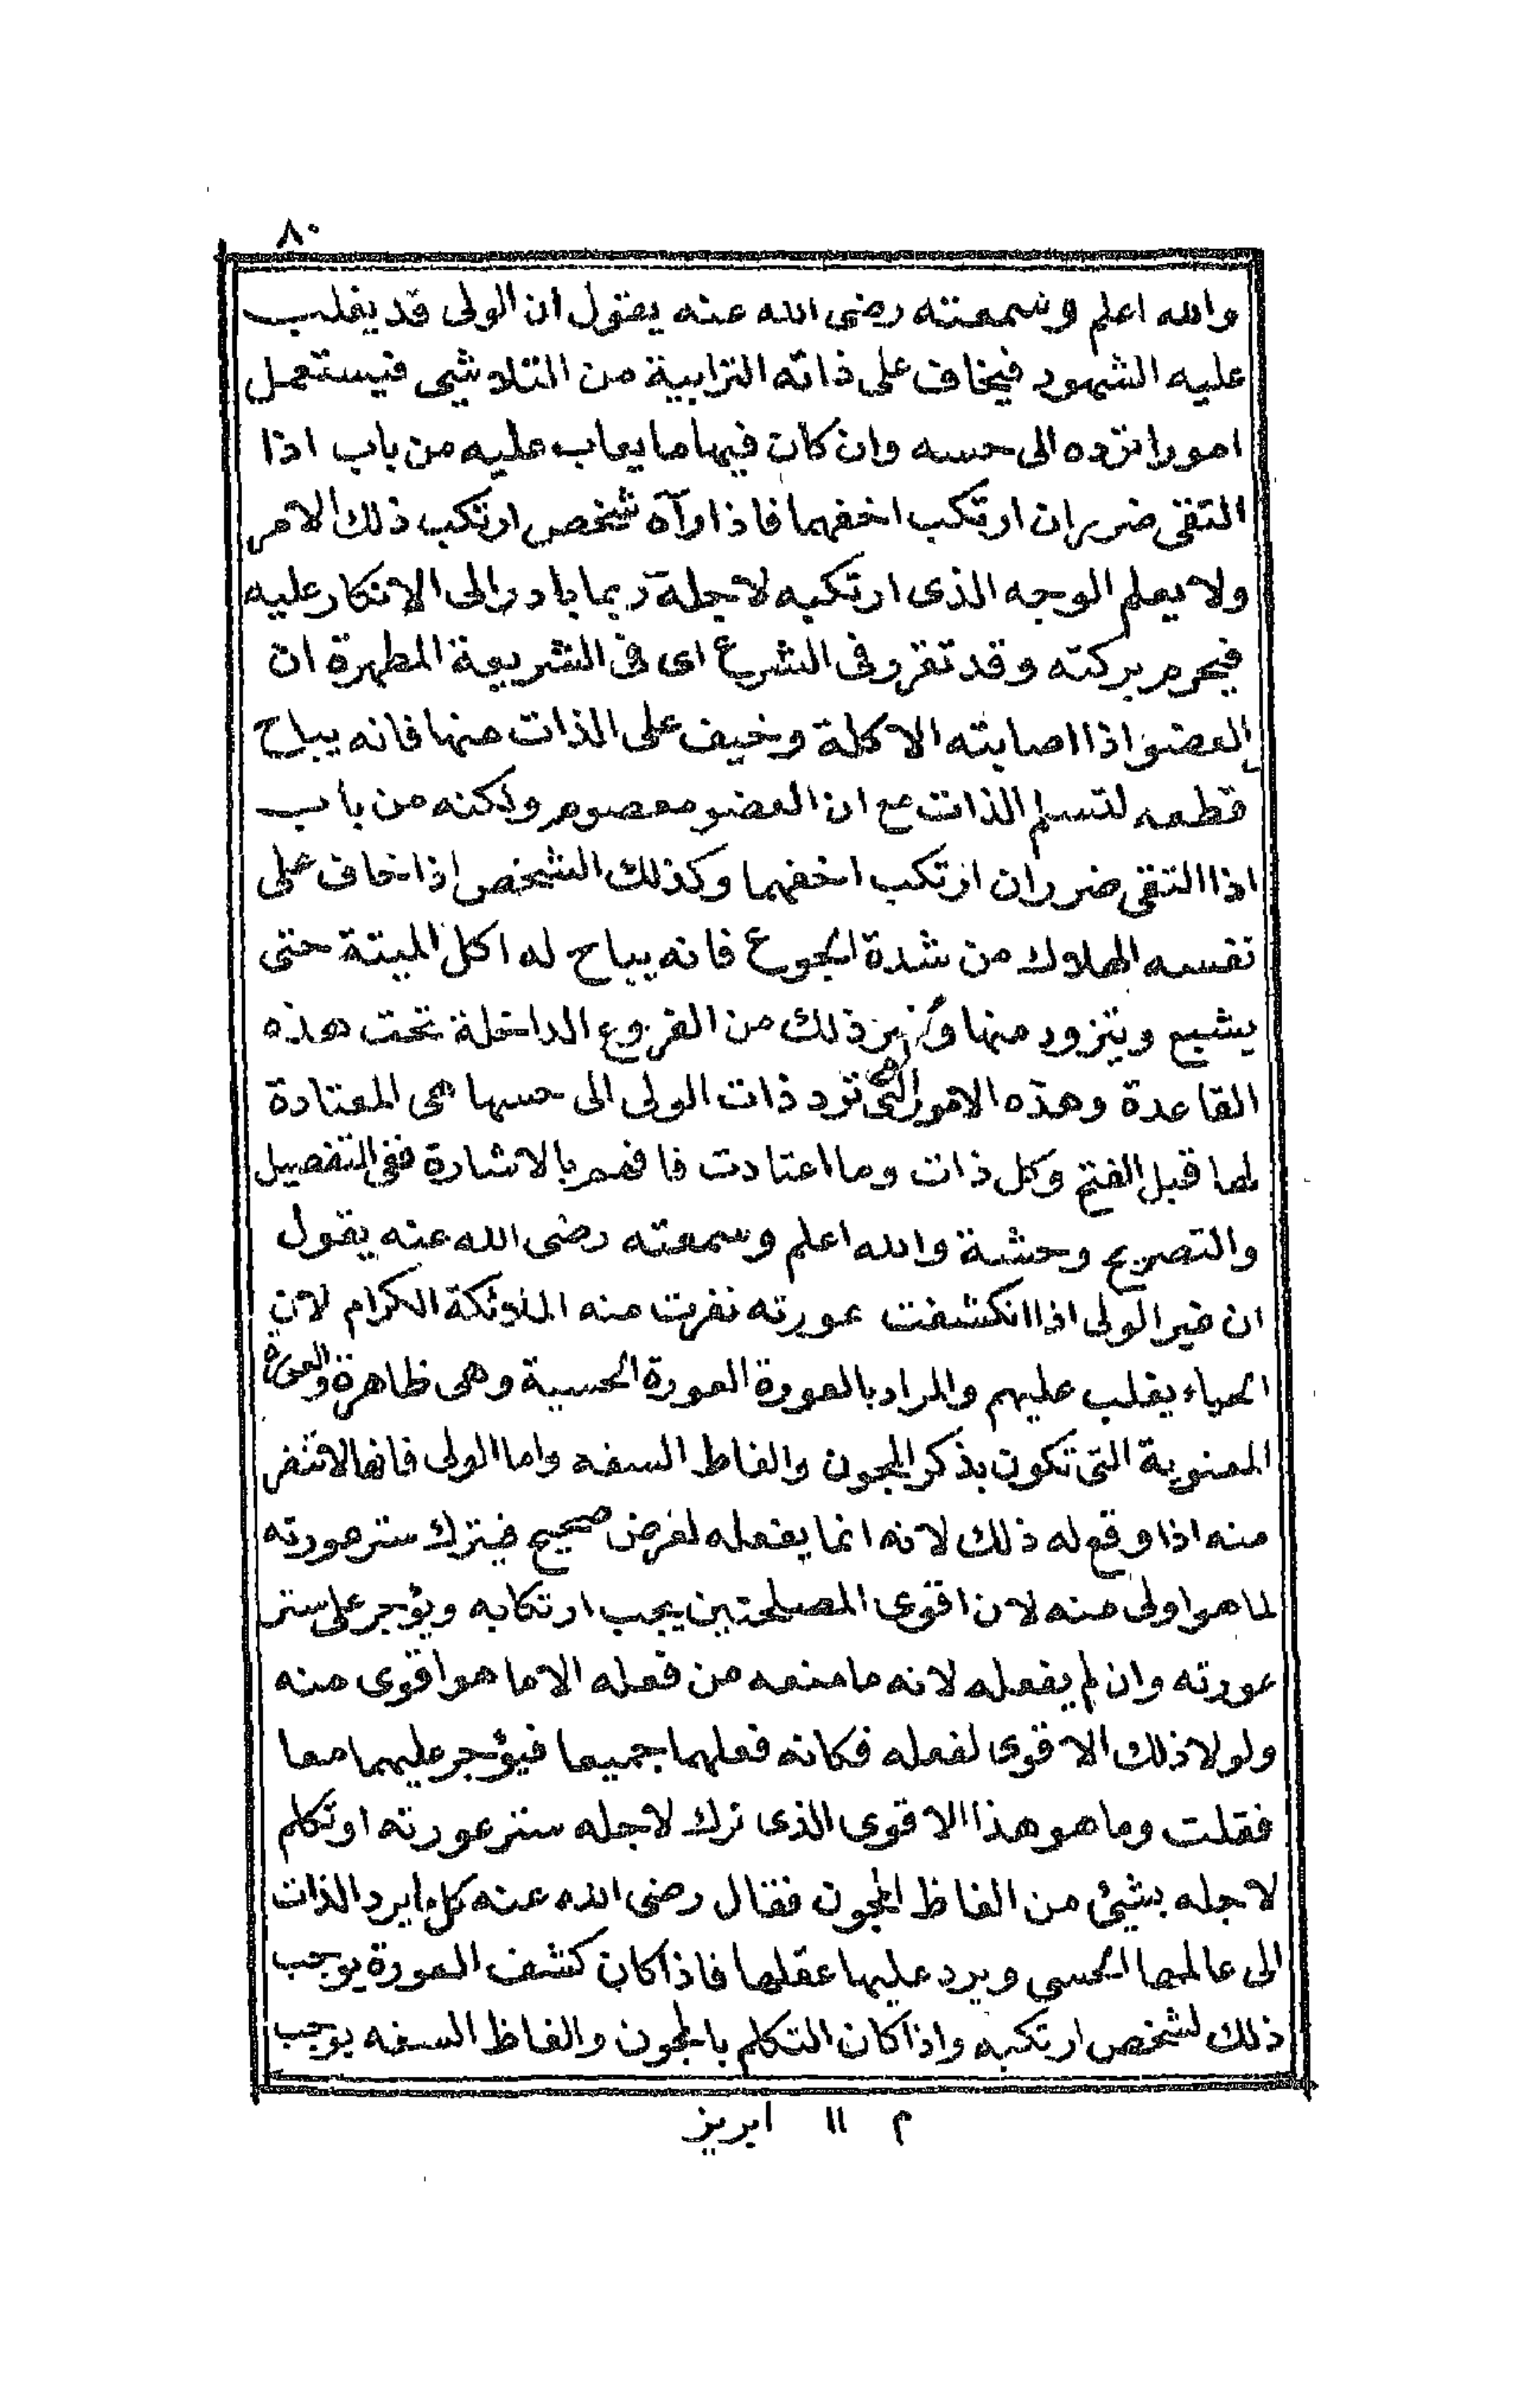 ٨٠
والله اعلم وسمعته رضى الله عنه يقول ان الولى قد يغلب
عليه الشهود فيخاف على ذاته الترابية من التلاشى فيستعمل
امورا ترده الى حسه وان كان فيها ما يعاب عليه من باب اذا
التقى ضرران ارتكب اخفهما فاذا رآه شخص ارتكب ذلك الامر
ولا يعلم الوجه الذى ارتكبه لاجلة ربما بادر الى الانكار عليه
فيحرم بركته وقد تقرر فى الشرع اى فى الشريعة المطهرة ان
العضو اذا اصابته الاكلة وخيف على الذات منها فانه يباح
قطعه لتسلم الذات مع ان العضو معصوم ولكنه من باب
اذا التقى ضرران ارتكب اخفهما وكذلك الشخص اذا خاف على
نفسه الهلاك من شدة الجوع فانه يباح له اكل الميتة حتى
يشبع ويتزود منها وغير ذلك من الفروع الداخلة تحت هذه
القاعدة وهذه الامور التى ترد ذات الولى الى حسها هى المعتادة
لها قبل الفتح وكل ذات وما اعتادت فافهم بالاشارة ففى التفصيل
والتصريح وحشة والله اعلم وسمعته رضى الله عنه يقول
ان غير الولى اذا انكشفت عورته نفرت منه الملائكة الكرام لان
الحياء يغلب عليهم والمراد بالعورة العورة الحسية وهى ظاهرة والعورة
المعنوية التى تكون بذكر المجون والفاظ السفه واما الولى فانها لا تنفر
منه اذا وقع له ذلك لانه انما يفعله لغرض صحيح فيترك ستر عورته
لما هو اولى منه لان اقوى المصلحتين يجب ارتكابه ويؤجر على ستر
عورته وان لم يفعله لانه ما منعه من فعله الا ما هو اقوى منه
ولولا ذلك الاقوى لفعله فكانه فعلهما جميعا فيؤجر عليهما معا
فقلت وما هو هذا الاقوى الذى ترك لاجله ستر عورته او تكلم
لاجله بشيئ من الفاظ المجون فقال رضى الله عنه كل ما يرد الذات
الى عالمها الحسى ويرد عليها عقلها فاذا كان كشف العورة يوجب
ذلك لشخص ارتكبه واذا كان التكلم بالمجون والفاظ السفه يوجب
م ١١ ابريز